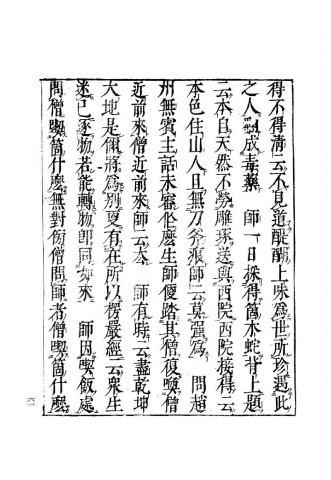 得不得淸云不見道醍醐上味爲世所珍遇此
之人翻成毒藥　師一日採得箇木蛇背上題
云本自天然不勞雕琢送與西院西院接得云
本色住山人且無刀斧痕師云莫强爲　問趙
州無賓主話未審作麽生師便踏其僧復喚僧
近前來僧近前來師云去　師有時云盡乾坤
大地是個將爲別更有在所以楞嚴經云衆生
迷己逐物若能轉物卽同如來　師因喫飯處
問僧喫箇什麽無對衙僧問師者僧喫箇什麽
六